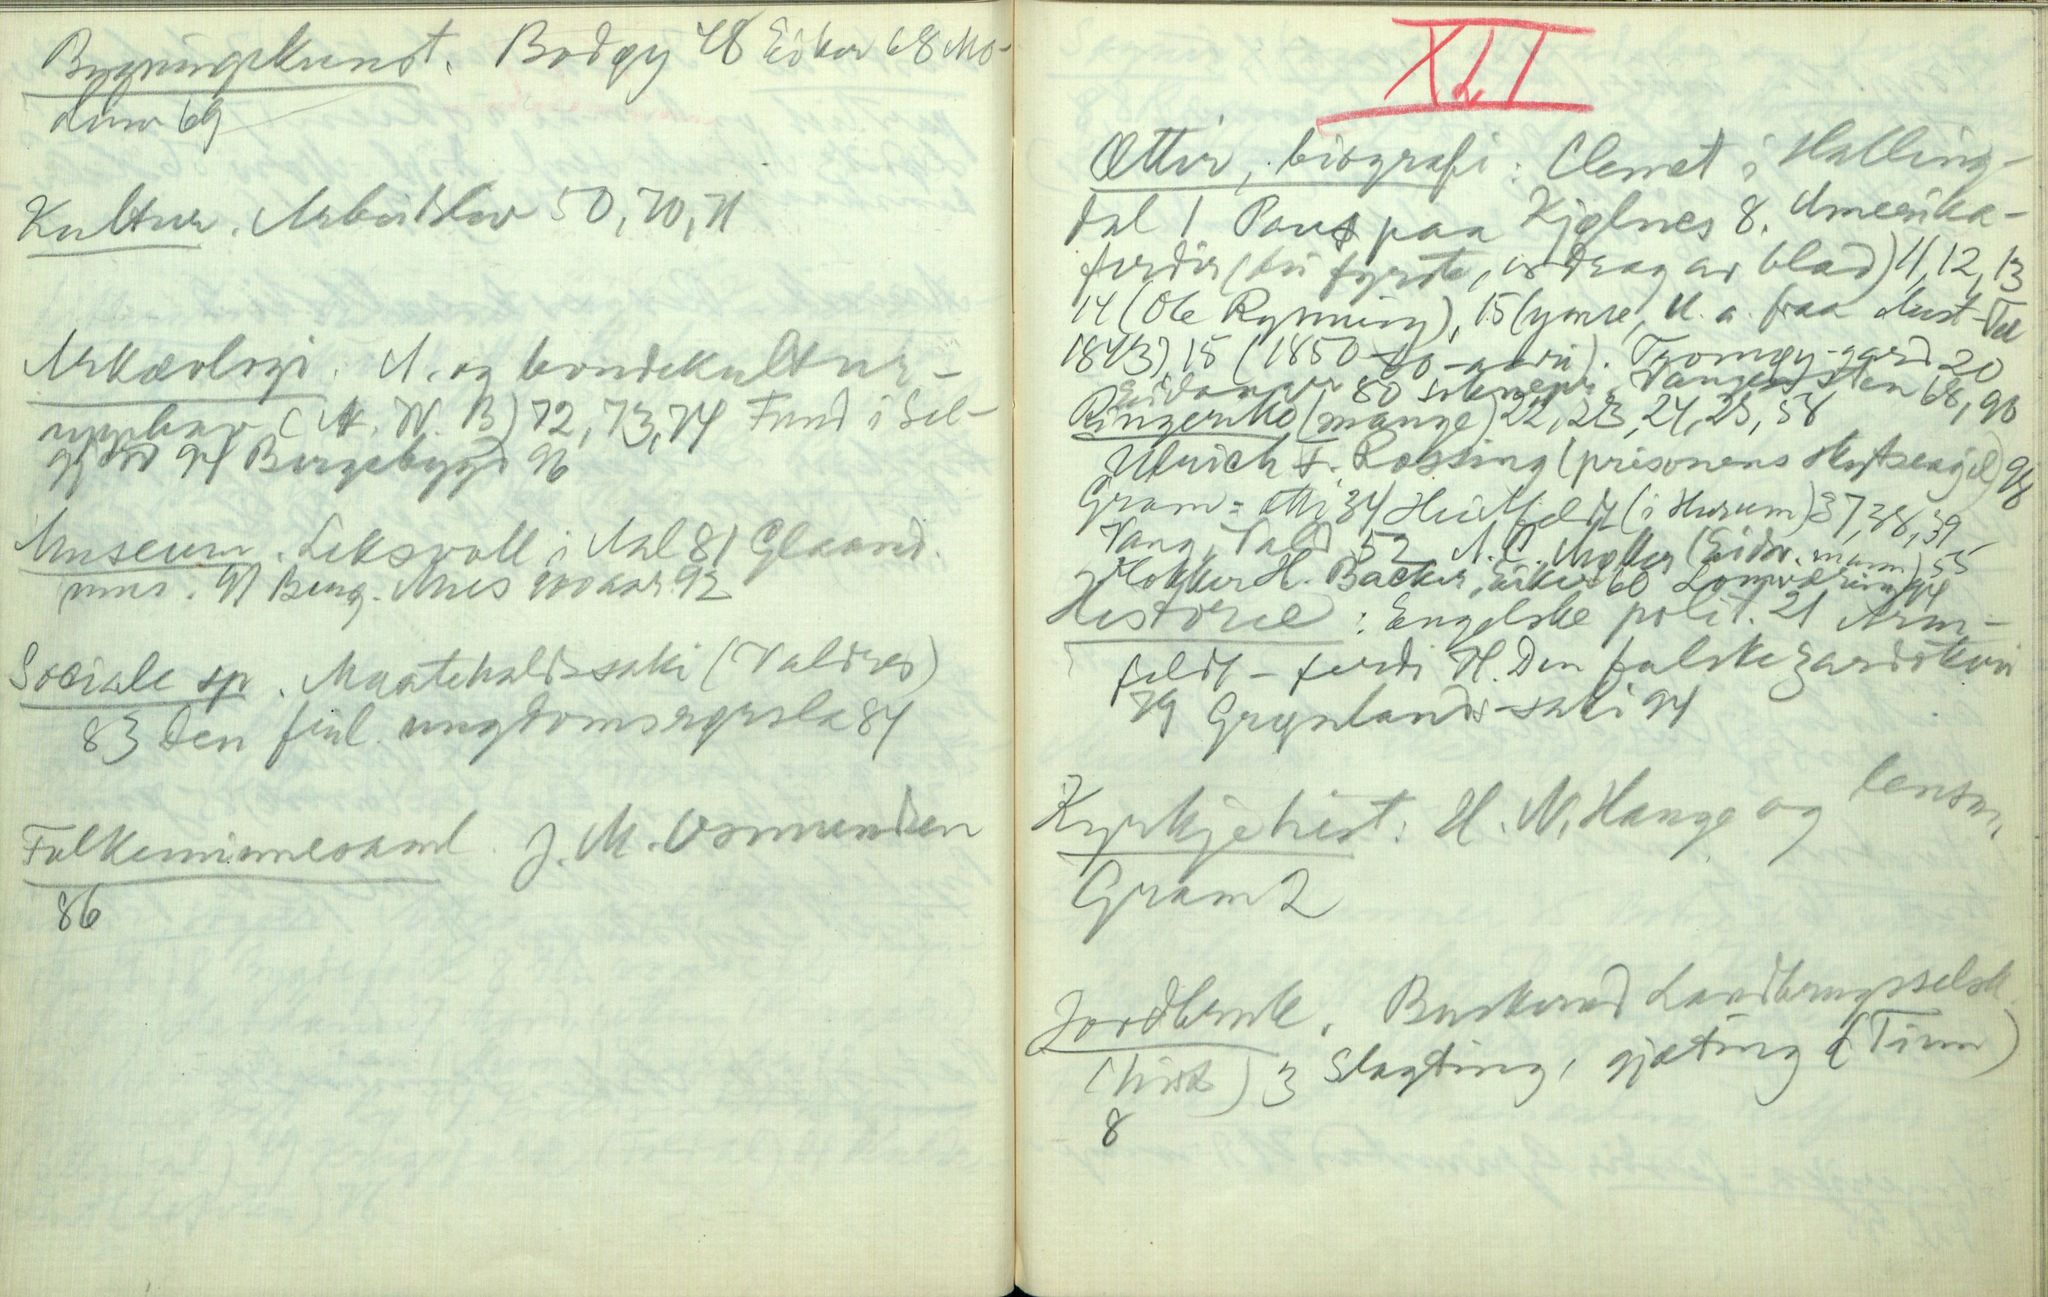 Bygningskunst. Bodøy 48 Eiker 68 Mo-
dum 69
Kultur. Arbeidslov 50, 70, 71
Arkæologi. A. og bondekultur-
(A. W. B) 72, 73, 74 Fund i Sel-
94 Bergebygd 96
Museum. Leksvoll i Aal 81 Glaamd.
mus. 91 Berg. Mus 100 aar 92
Sociale sp. Maatehaldssaki (Valdres)
83 Den fril. ungdomsrørsla 84
Folkeminnesaml. J. M. Osmundsen
86
XLI
Ættir, biografi: Clemet i Halling-
dal 1 Paus paa Kjølnes 8. Amerika-
ferdir (dei fyrste, utdrag av blad) 11, 12, 13
14 (Ole Rynning), 15 (ymse, m. a. fraa Aust-Tel
1843), 15 (1850-60-aari). Tromøy-gard 20
Eidanger 80 Vangensten 68, 90
Ringerike (mange) 22, 23, 24, 25, 58
Ulrich F. Rossing (prisonens skytsengel) 98
Gram-ætti 34 Huitfeldt (i Hurum) 37, 38, 39
Vang, Vald 52 N. N. Møller (Eidsv. mann) 55
Klokker H. Backer, Eiker 60 94
Historie: Engelske polit. 21 Arm-
feldt-ferdi 71. Den falske
79 Grønlands-saki 94
Kyrkjehist: H. N. Hauge og lensm.
Gram 2
Jordbruk. Buskerud Landbrugsselsk.
(hist) 3 Slagting, gjæting (Tinn)
8